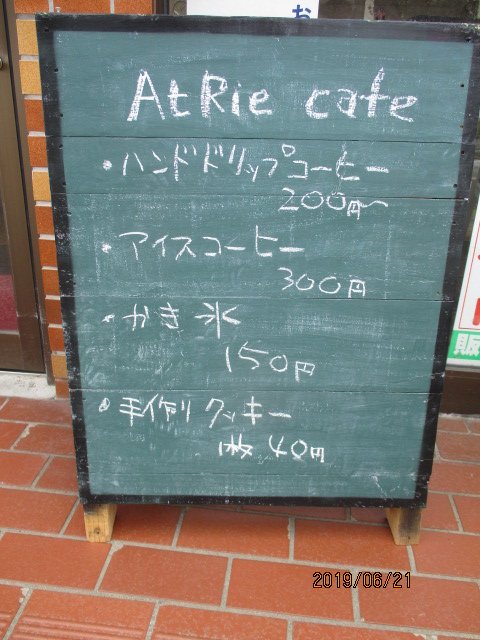 お
AtRie cafe
・ハンドドリップコーヒー
200円〜
・アイスコーヒー
300円
・かき氷
150円
・手作りクッキー
1枚 40円
販
2019/06/21